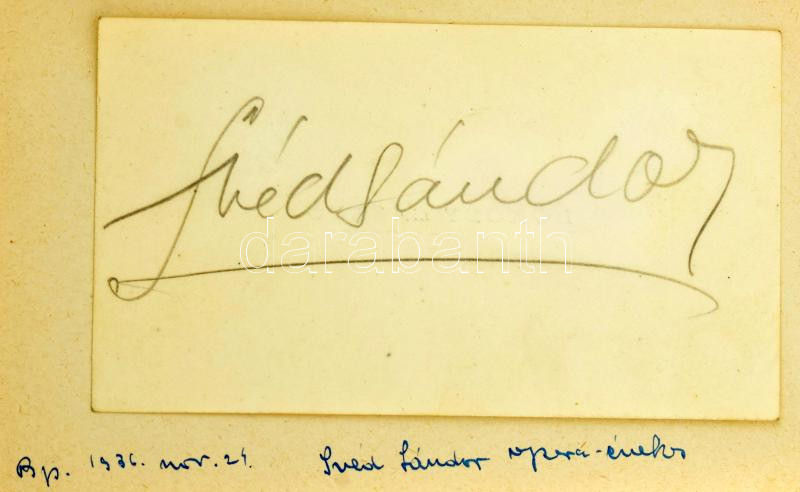 Svéd Sándor
darabanth
Bp. 1936. nov. 24. Svéd Sándor opera-énekes